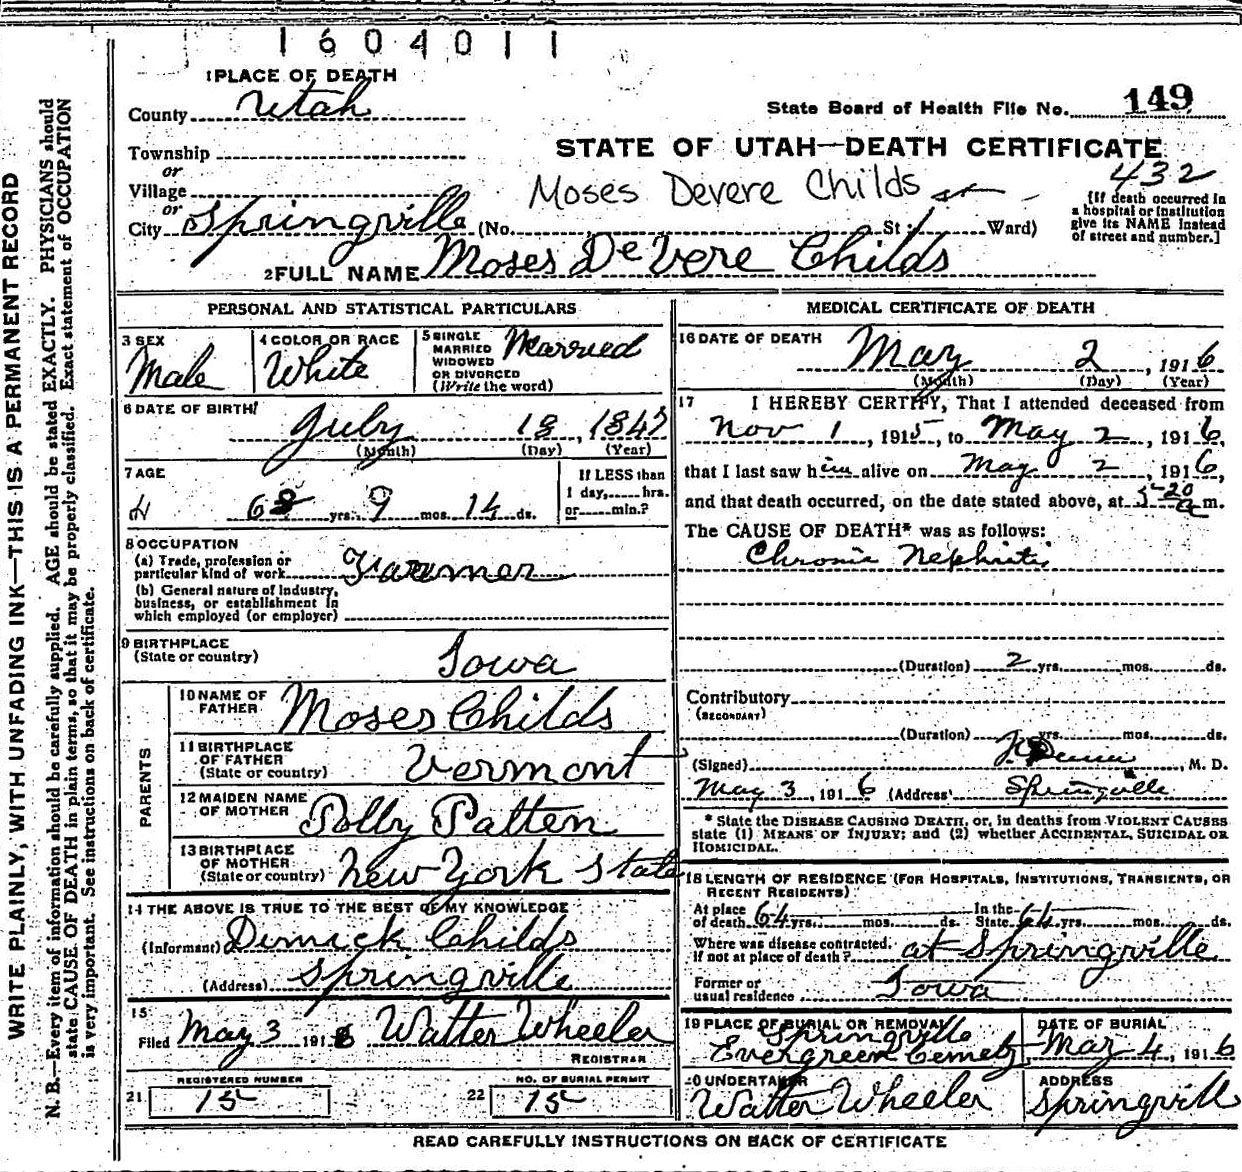 1604011
1 PLACE OF DEATH
County Utah
State Board of Health File No. 149
STATE OF UTAH—DEATH CERTIFICATE
432
Township
or
Village
Moses Devere Childs
or
City Springville (No. St; Ward)
[If death occurred in
a hospital or institution
give its NAME instead
of street and number.]
2 FULL NAME Moses DeVere Childs
PERSONAL AND STATISTICAL PARTICULARS
3 SEX
Male
4 COLOR OR RACE
White
5 SINGLE
MARRIED
WIDOWED
OR DIVORCED
(Write the word)
Married
6 DATE OF BIRTH
July 18, 1847
(Month) (Day) (Year)
7 AGE
68 yrs. 9 mos. 14 ds.
If LESS than
1 day, hrs.
or min.?
8 OCCUPATION
(a) Trade, profession or
particular kind of work Farmer
(b) General nature of industry,
business, or establishment in
which employed (or employer)
9 BIRTHPLACE
(State or country) Iowa
PARENTS
10 NAME OF
FATHER Moses Childs
11 BIRTHPLACE
OF FATHER
(State or country) Vermont
12 MAIDEN NAME
OF MOTHER Polly Patten
13 BIRTHPLACE
OF MOTHER
(State or country) New York State
14 THE ABOVE IS TRUE TO THE BEST OF MY KNOWLEDGE
(Informant) Dimick Childs
(Address) Springville
15
Filed May 3 191 Walter Wheeler
REGISTRAR
REGISTERED NUMBER
21 15
NO. OF BURIAL PERMIT
22 15
MEDICAL CERTIFICATE OF DEATH
16 DATE OF DEATH
May 2, 1916
(Month) (Day) (Year)
17 I HEREBY CERTIFY, That I attended deceased from
Nov 1, 1915, to May 2, 1916,
that I last saw him alive on May 2, 1916,
and that death occurred, on the date stated above, at 5-20 a m.
The CAUSE OF DEATH* was as follows:
Chronic Nephritis
(Duration) 2 yrs. mos. ds.
Contributory
(SECONDARY)
(Duration) yrs. mos. ds.
(Signed) M. D.
May 3, 1916 (Address) Springville
* State the DISEASE CAUSING DEATH, or, in deaths from VIOLENT CAUSES
state (1) MEANS OF INJURY; and (2) whether ACCIDENTAL, SUICIDAL OR
HOMICIDAL.
18 LENGTH OF RESIDENCE (FOR HOSPITALS, INSTITUTIONS, TRANSIENTS, OR
RECENT RESIDENTS)
At place
of death 64 yrs. mos. ds.
In the
State 64 yrs. mos. ds.
Where was disease contracted,
If not at place of death? at Springville
Former or
usual residence Iowa
19 PLACE OF BURIAL OR REMOVAL
Springville
Evergreen Cemety
DATE OF BURIAL
May 4, 1916
20 UNDERTAKER
Walter Wheeler
ADDRESS
Springvill
READ CAREFULLY INSTRUCTIONS ON BACK OF CERTIFICATE
WRITE PLAINLY, WITH UNFADING INK—THIS IS A PERMANENT RECORD
N. B.—Every item of information should be carefully supplied. AGE should be stated EXACTLY. PHYSICIANS should
state CAUSE OF DEATH in plain terms, so that it may be properly classified. Exact statement of OCCUPATION
is very important. See instructions on back of certificate.